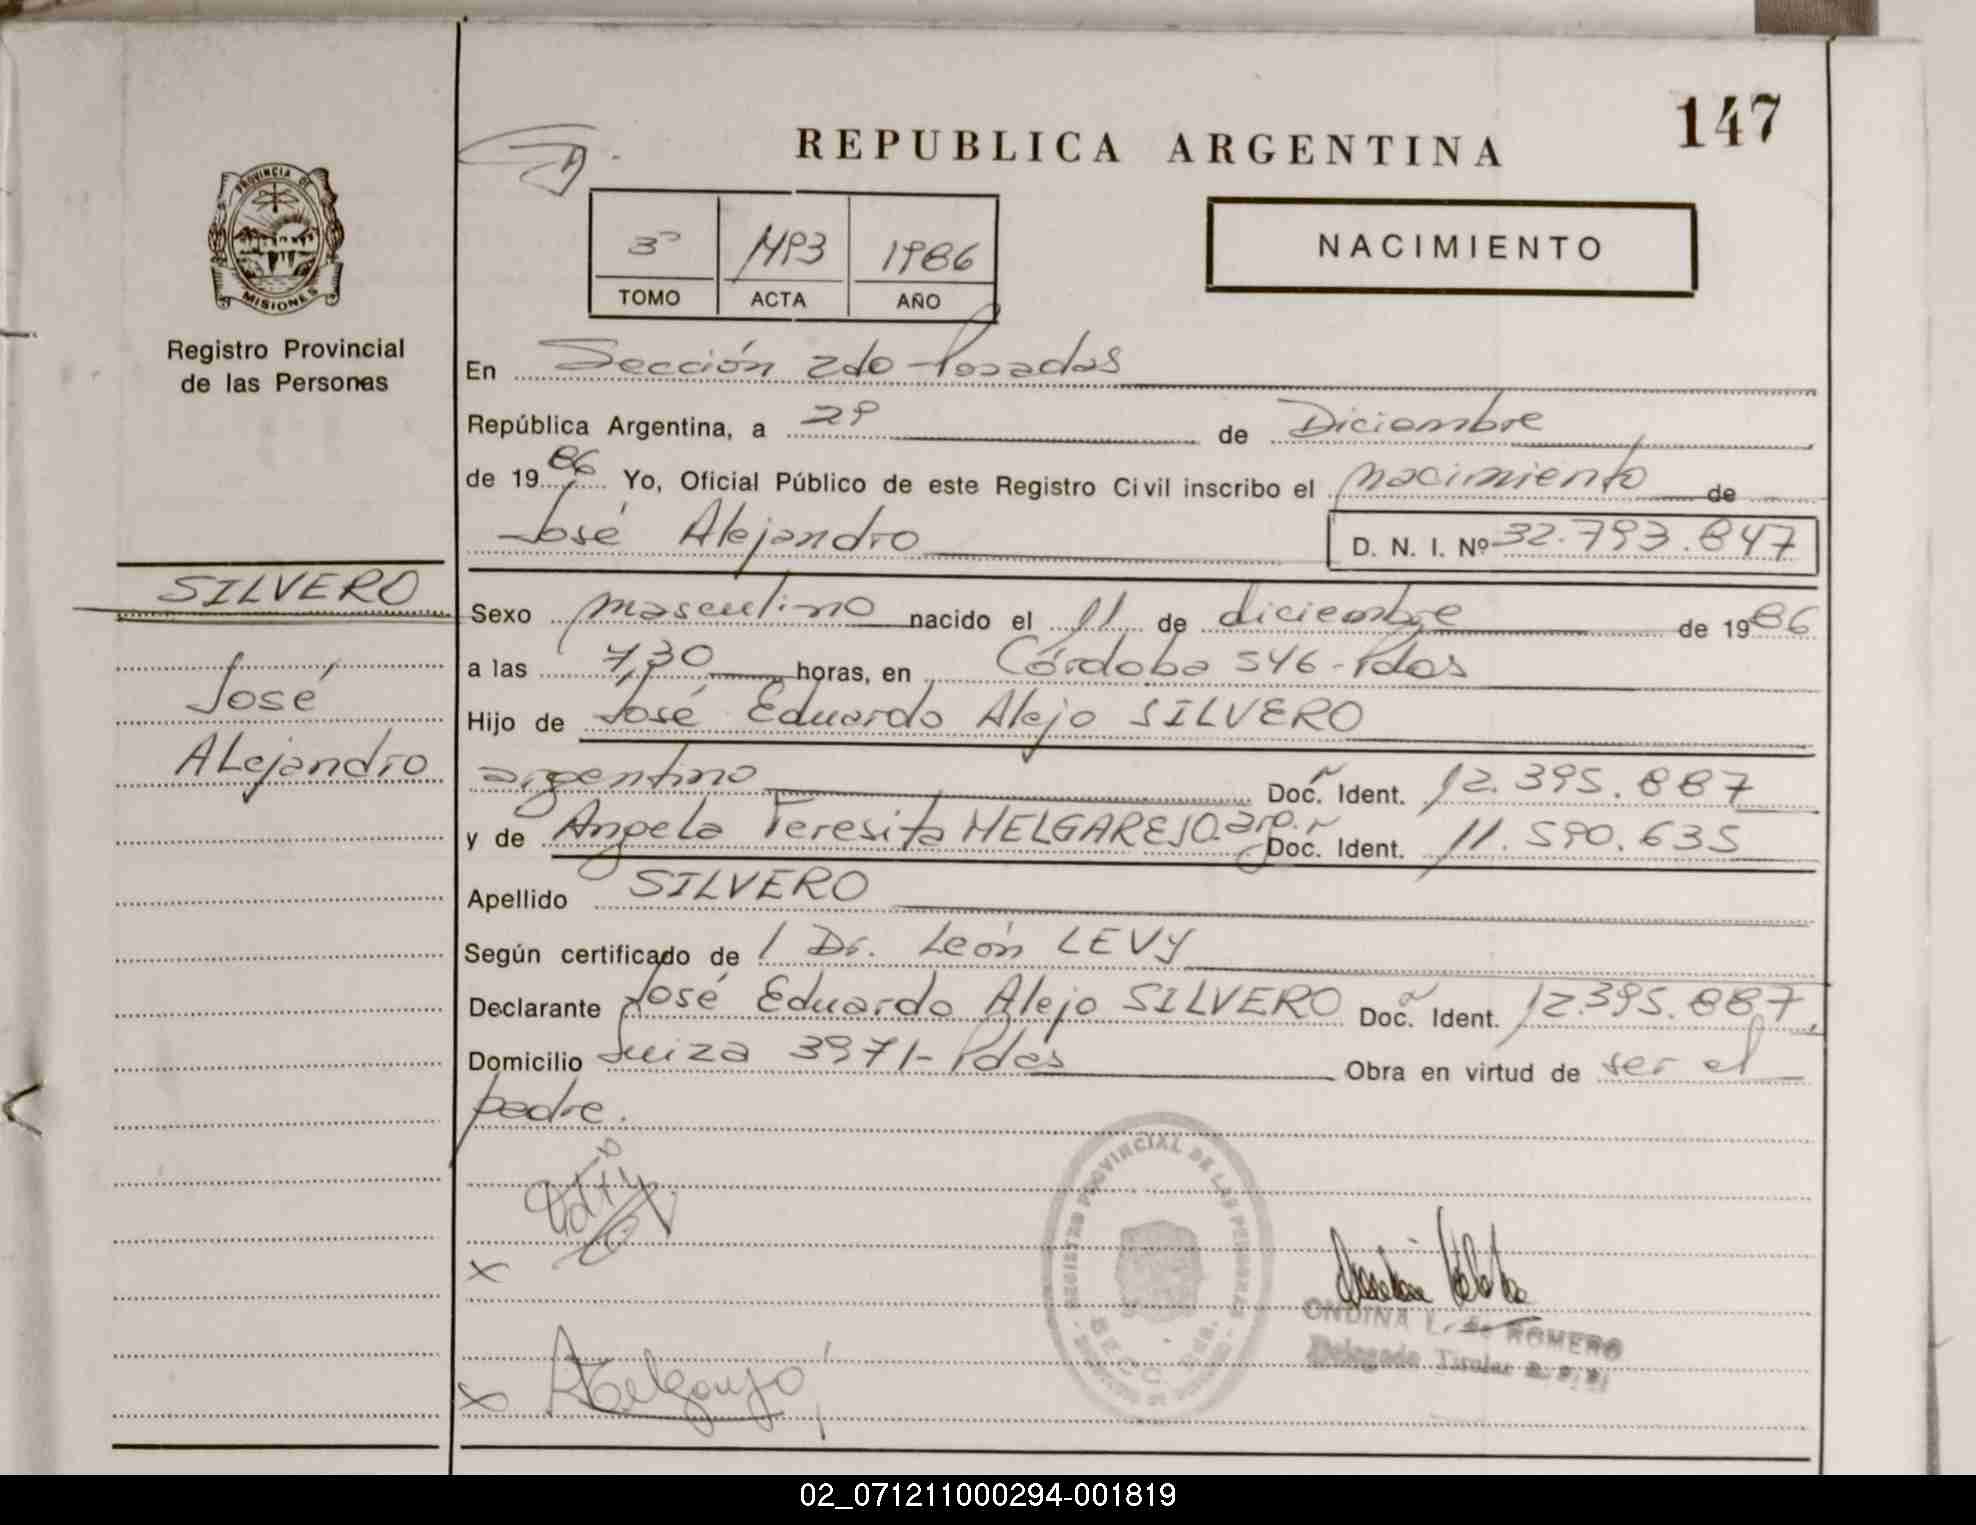 147
REPUBLICA ARGENTINA
NACIMIENTO
3º 1493 1986
TOMO ACTA AÑO
PROVINCIA DE
MISIONES
Registro Provincial
de las Personas
SILVERO
José
Alejandro
En Sección 2do Posadas
República Argentina, a 29 de Diciembre
de 1986 Yo, Oficial Público de este Registro Civil inscribo el nacimiento de
José Alejandro D. N. I. Nº 32.793.847
Sexo masculino nacido el 11 de diciembre de 1986
a las 7,30 horas, en Córdoba 546-Pdas
Hijo de José Eduardo Alejo SILVERO
argentino Doc. Ident. 12.395.887
y de Angela Teresita MELGAREJO. arg. Doc. Ident. 11.590.635
Apellido SILVERO
Según certificado de Dr. León LEVY
Declarante José Eduardo Alejo SILVERO Doc. Ident. 12.395.887,
Domicilio Suiza 3971-Pdas Obra en virtud de ser el
padre.
REGISTRO PROVINCIAL DE LAS PERSONAS
x
ONDINA L. de ROMERO
Delegada Titular
x Melgarejo
02_071211000294-001819